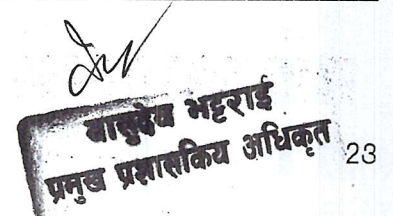 बासुदेव भट्टराई
प्रमुख प्रशासकिय अधिकृत
23